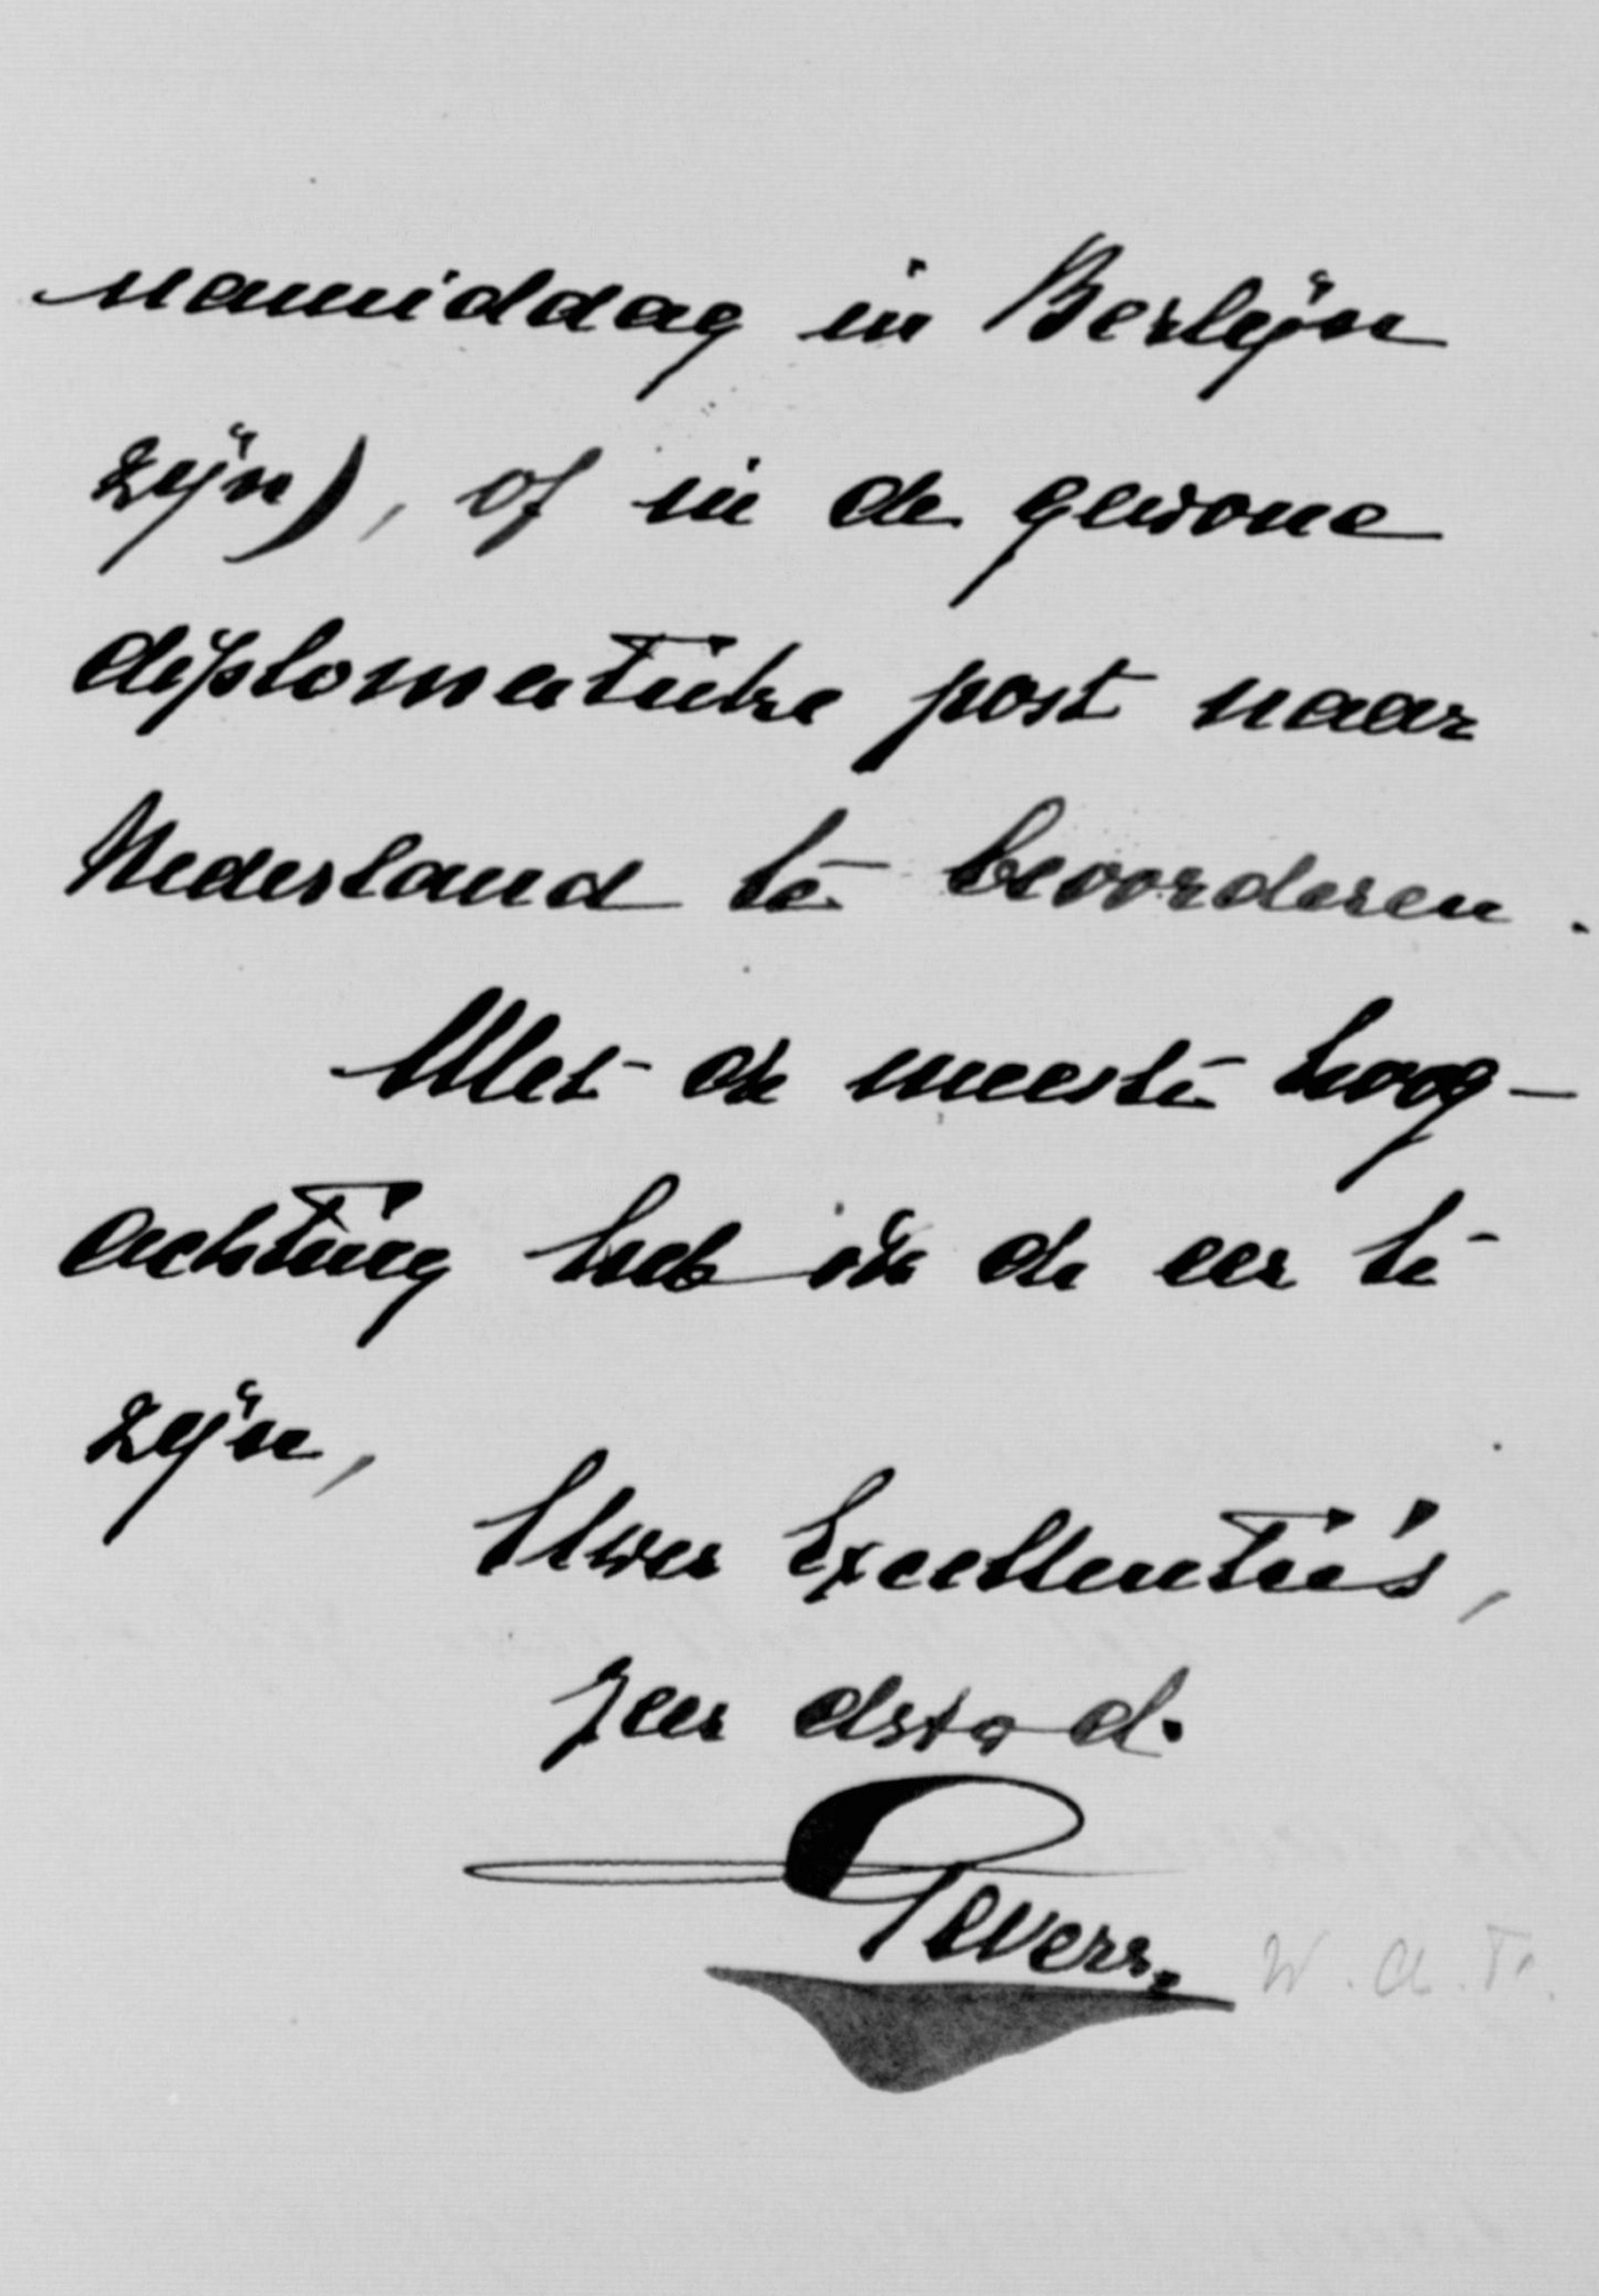 namiddag in Berlijn
zijn), of in de gewone
diplomatieke post naar
Nederland te bevorderen.
Met de meeste hoog-
achting heb ik de eer te
zijn,
Uwer Excellentie's,
zeer dstw d.
Gevers.
W. A. F.